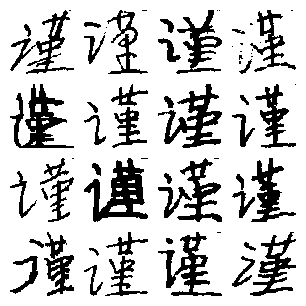 谨谨谨谨
谨谨谨谨
谨谨谨谨
谨谨谨谨